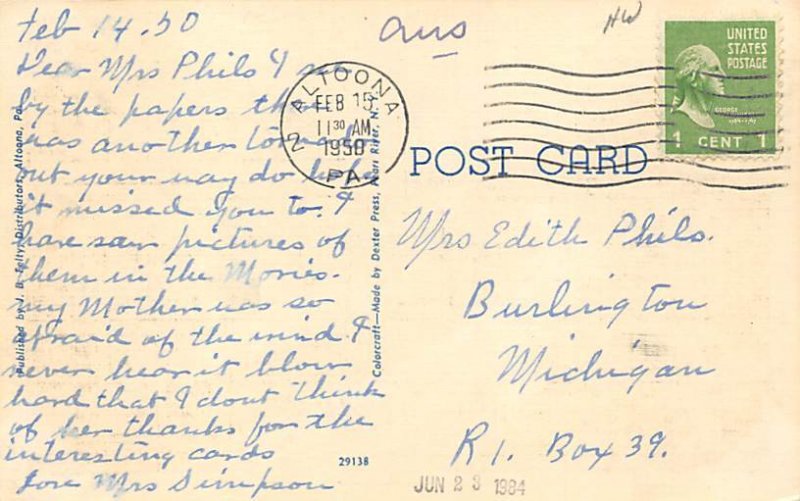 Feb 14.50
Dear Mrs Phils I see
by the papers there
was another tornado
out your way do hope
it missed you to. I
have saw pictures of
them in the Movies.
my Mother was so
afraid of the wind I
never hear it blow
hard that I dont think
of her thanks for the
interesting cards
Love Mrs Simpson
Published by J. B. Felty Distributors, Altoona, Pa.
Colorcraft—Made by Dexter Press, Pearl River, N.
29138
ans
HW
ALTOONA
2
FEB 15
11 30 AM
1950
PA.
UNITED
STATES
POSTAGE
GEORGE
1 CENT 1
POST CARD
Mrs Edith Phils.
Burlington
Michigan
R1. Box 39.
JUN 23 1984